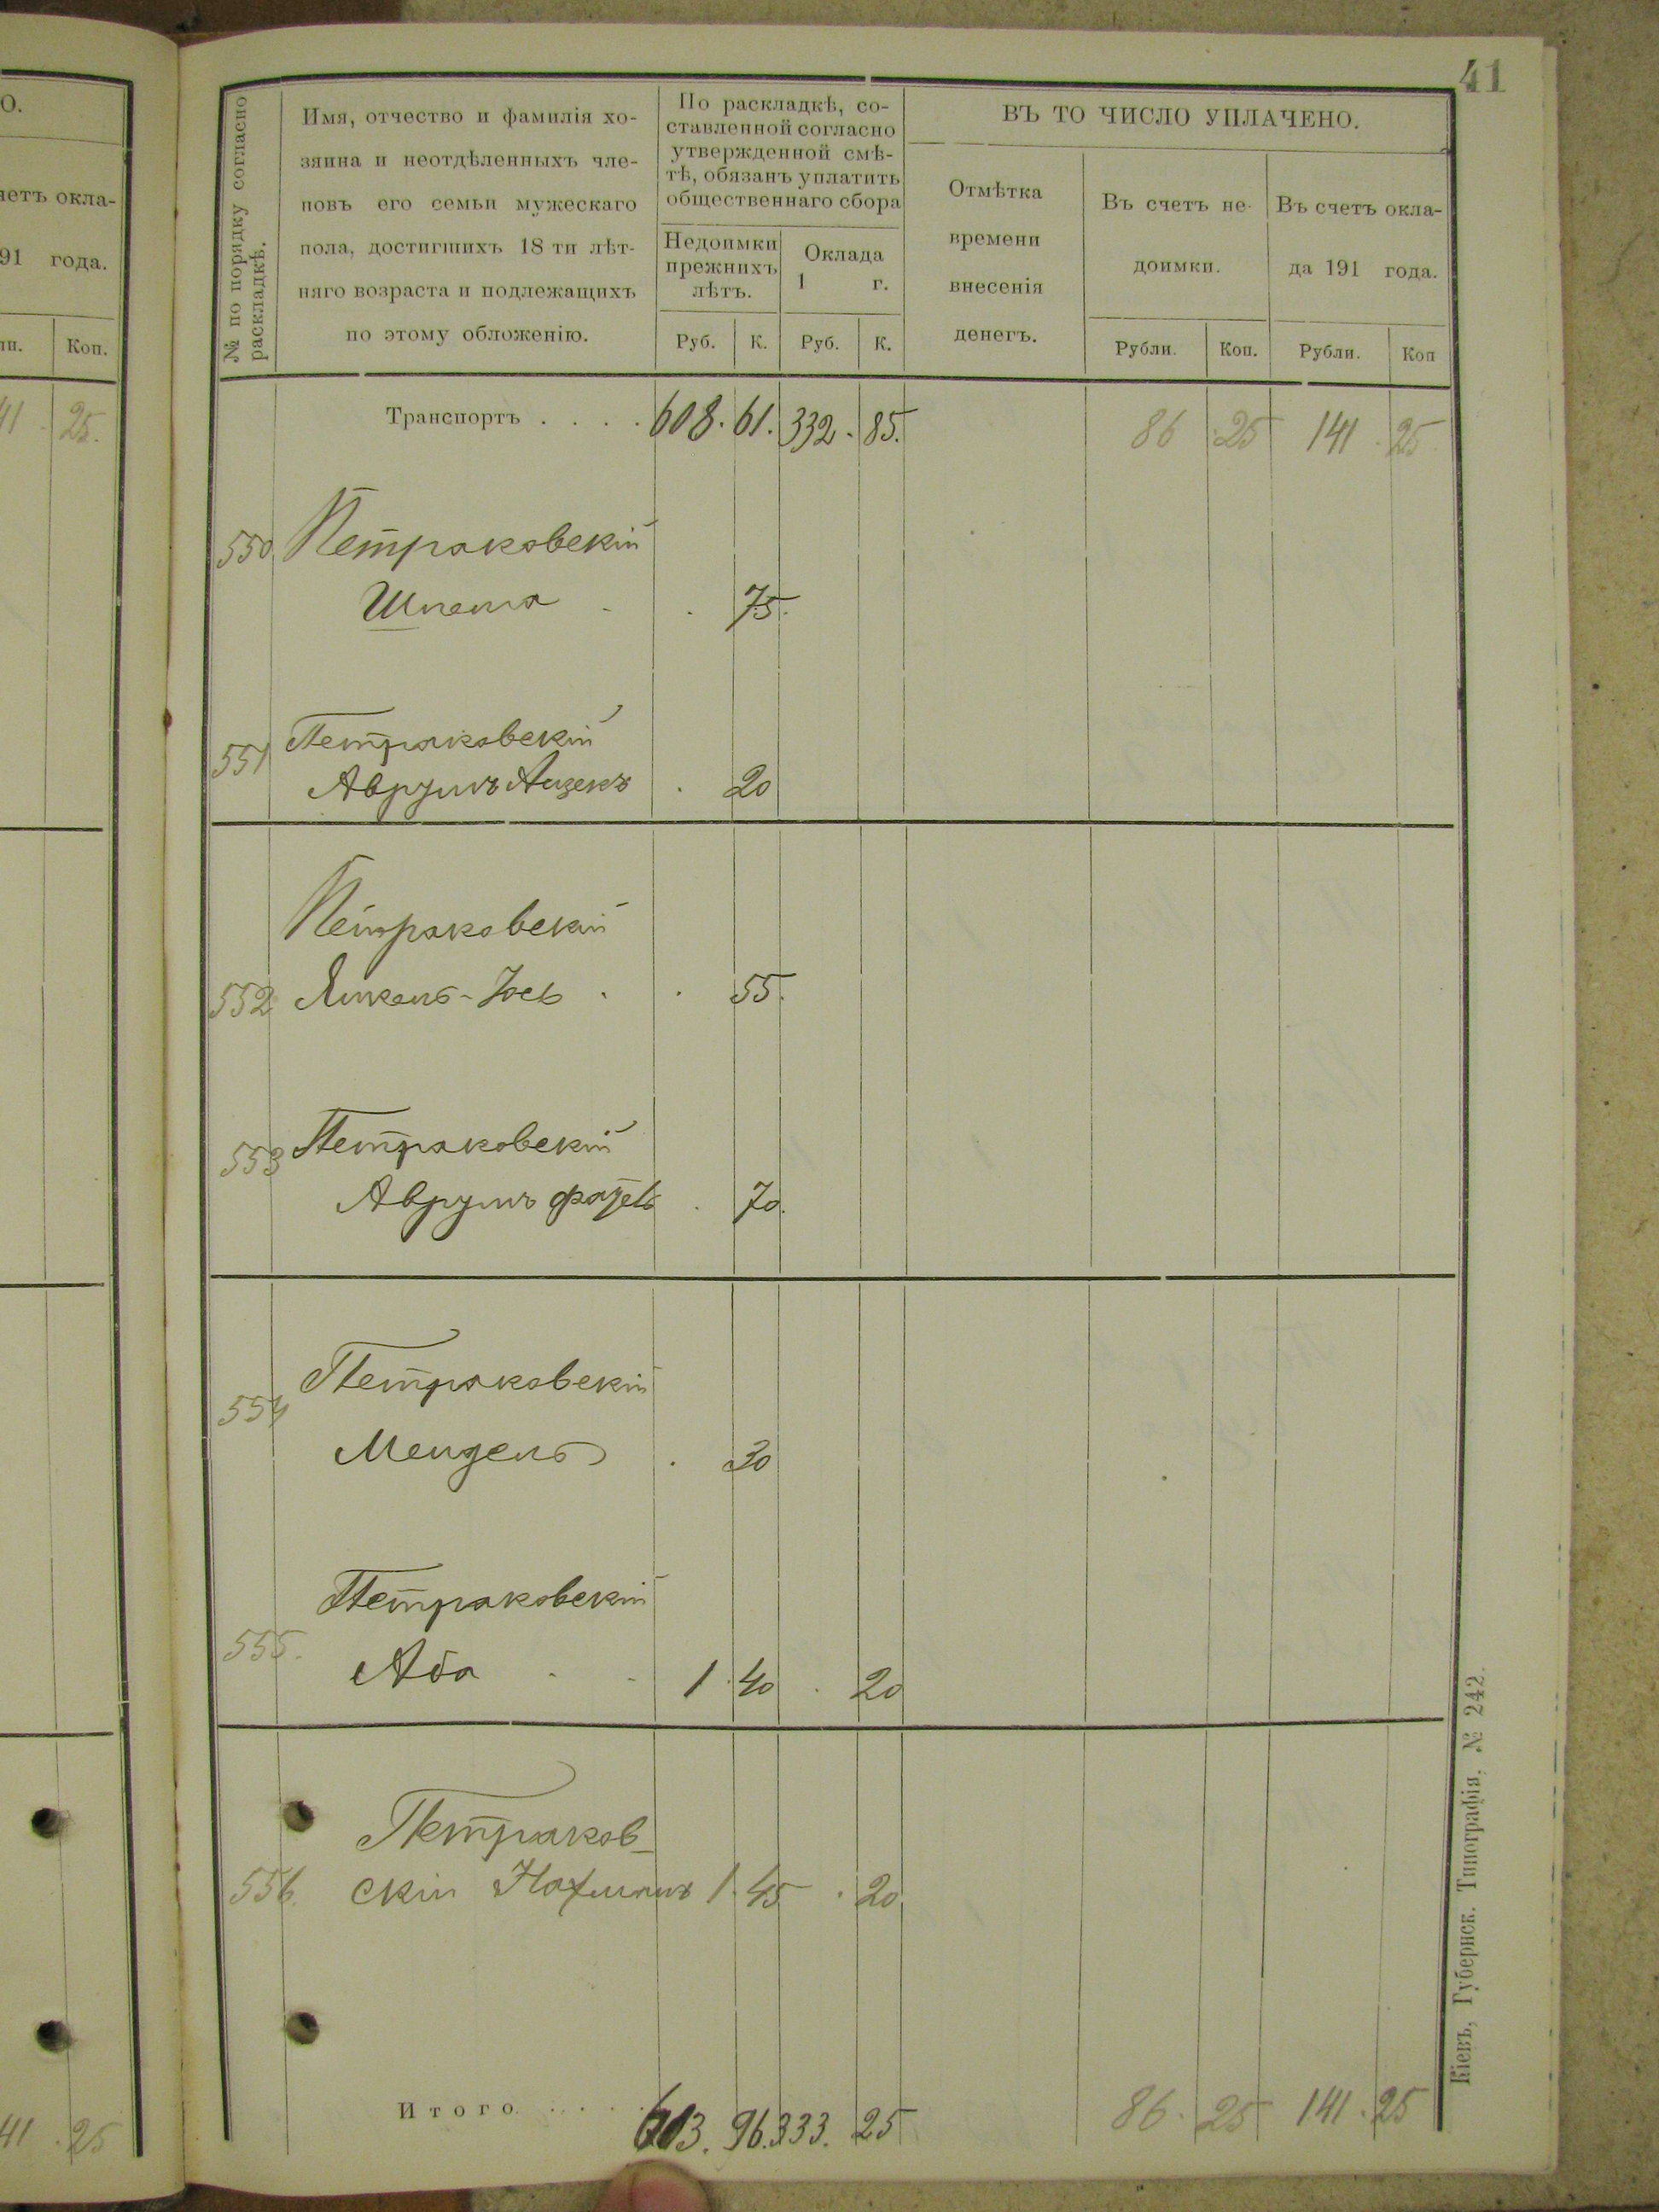 О.
четъ окла-
91 года.
Коп.
41 25.
41 25
41
№ по порядку согласно
раскладкѣ.
Имя, отчество и фамилія хо-
зяина и неотдѣленныхъ чле-
новъ его семьи мужескаго
пола, достигшихъ 18 ти лѣт-
няго возраста и подлежащихъ
по этому обложенію.
По раскладкѣ, со-
ставленной согласно
утвержденной смѣ-
тѣ, обязанъ уплатить
общественнаго сбора
Недоимки
прежнихъ
лѣтъ.
Оклада
1 г.
Руб. К. Руб. К.
ВЪ ТО ЧИСЛО УПЛАЧЕНО.
Отмѣтка
времени
внесенія
денегъ.
Въ счетъ не-
доимки.
Въ счетъ окла-
да 191 года.
Рубли. Коп. Рубли. Коп
Транспортъ . . . . 608. 61. 332. 85. 86 25 141 25
550 Петраковскій
Шлема . . 75.
551 Петраковскій
Аврумъ Айзекъ . 20
Петраковскій
552 Янкель-Іось . . 55.
553 Петраковскій
Аврумъ . 70.
554 Петраковскій
Мендель . 30
Петраковскій
555. Аба . . 1 40 . 20
Петраков-
556. скій Нахманъ 1. 45 . 20
Итого . . . . 613. 96. 333. 25 86. 25 141. 25
Кіевъ, Губернск. Типографія, № 242.